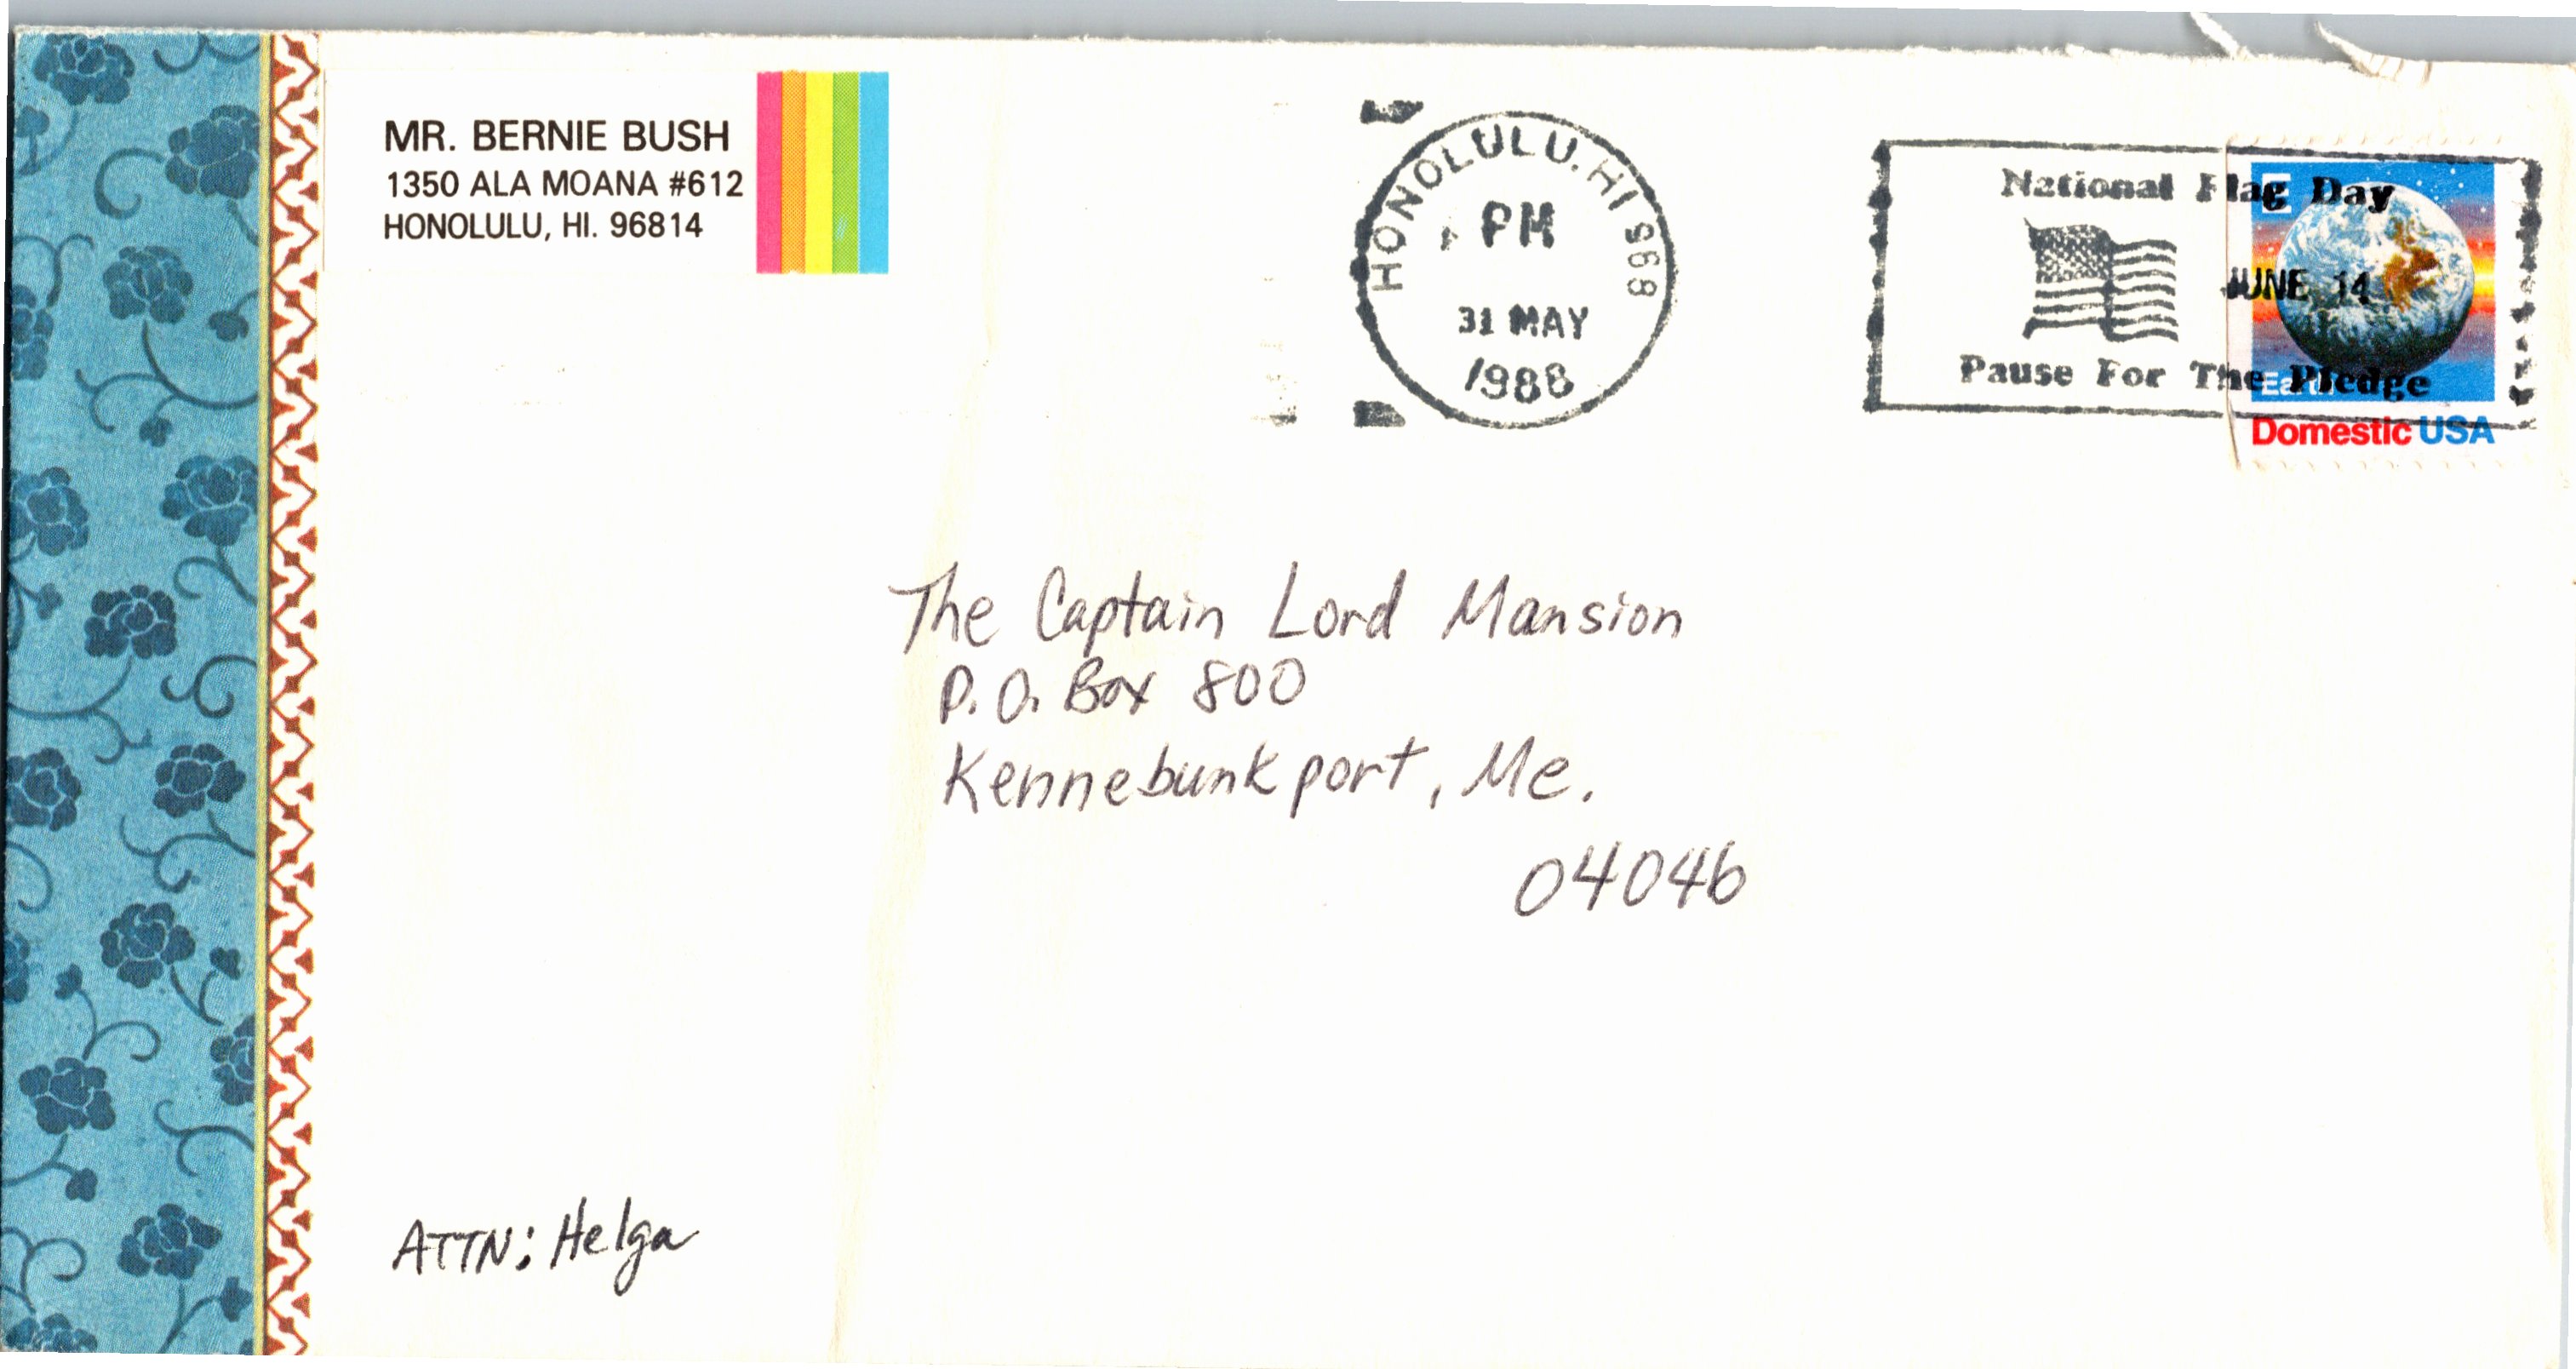 MR. BERNIE BUSH
1350 ALA MOANA #612
HONOLULU, HI. 96814
HONOLULU, HI 968
PM
31 MAY
1988
National Flag Day
JUNE 14
Pause For The Pledge
E
Earth
Domestic USA
The Captain Lord Mansion
P.O. Box 800
Kennebunkport, Me.
04046
ATTN: Helga